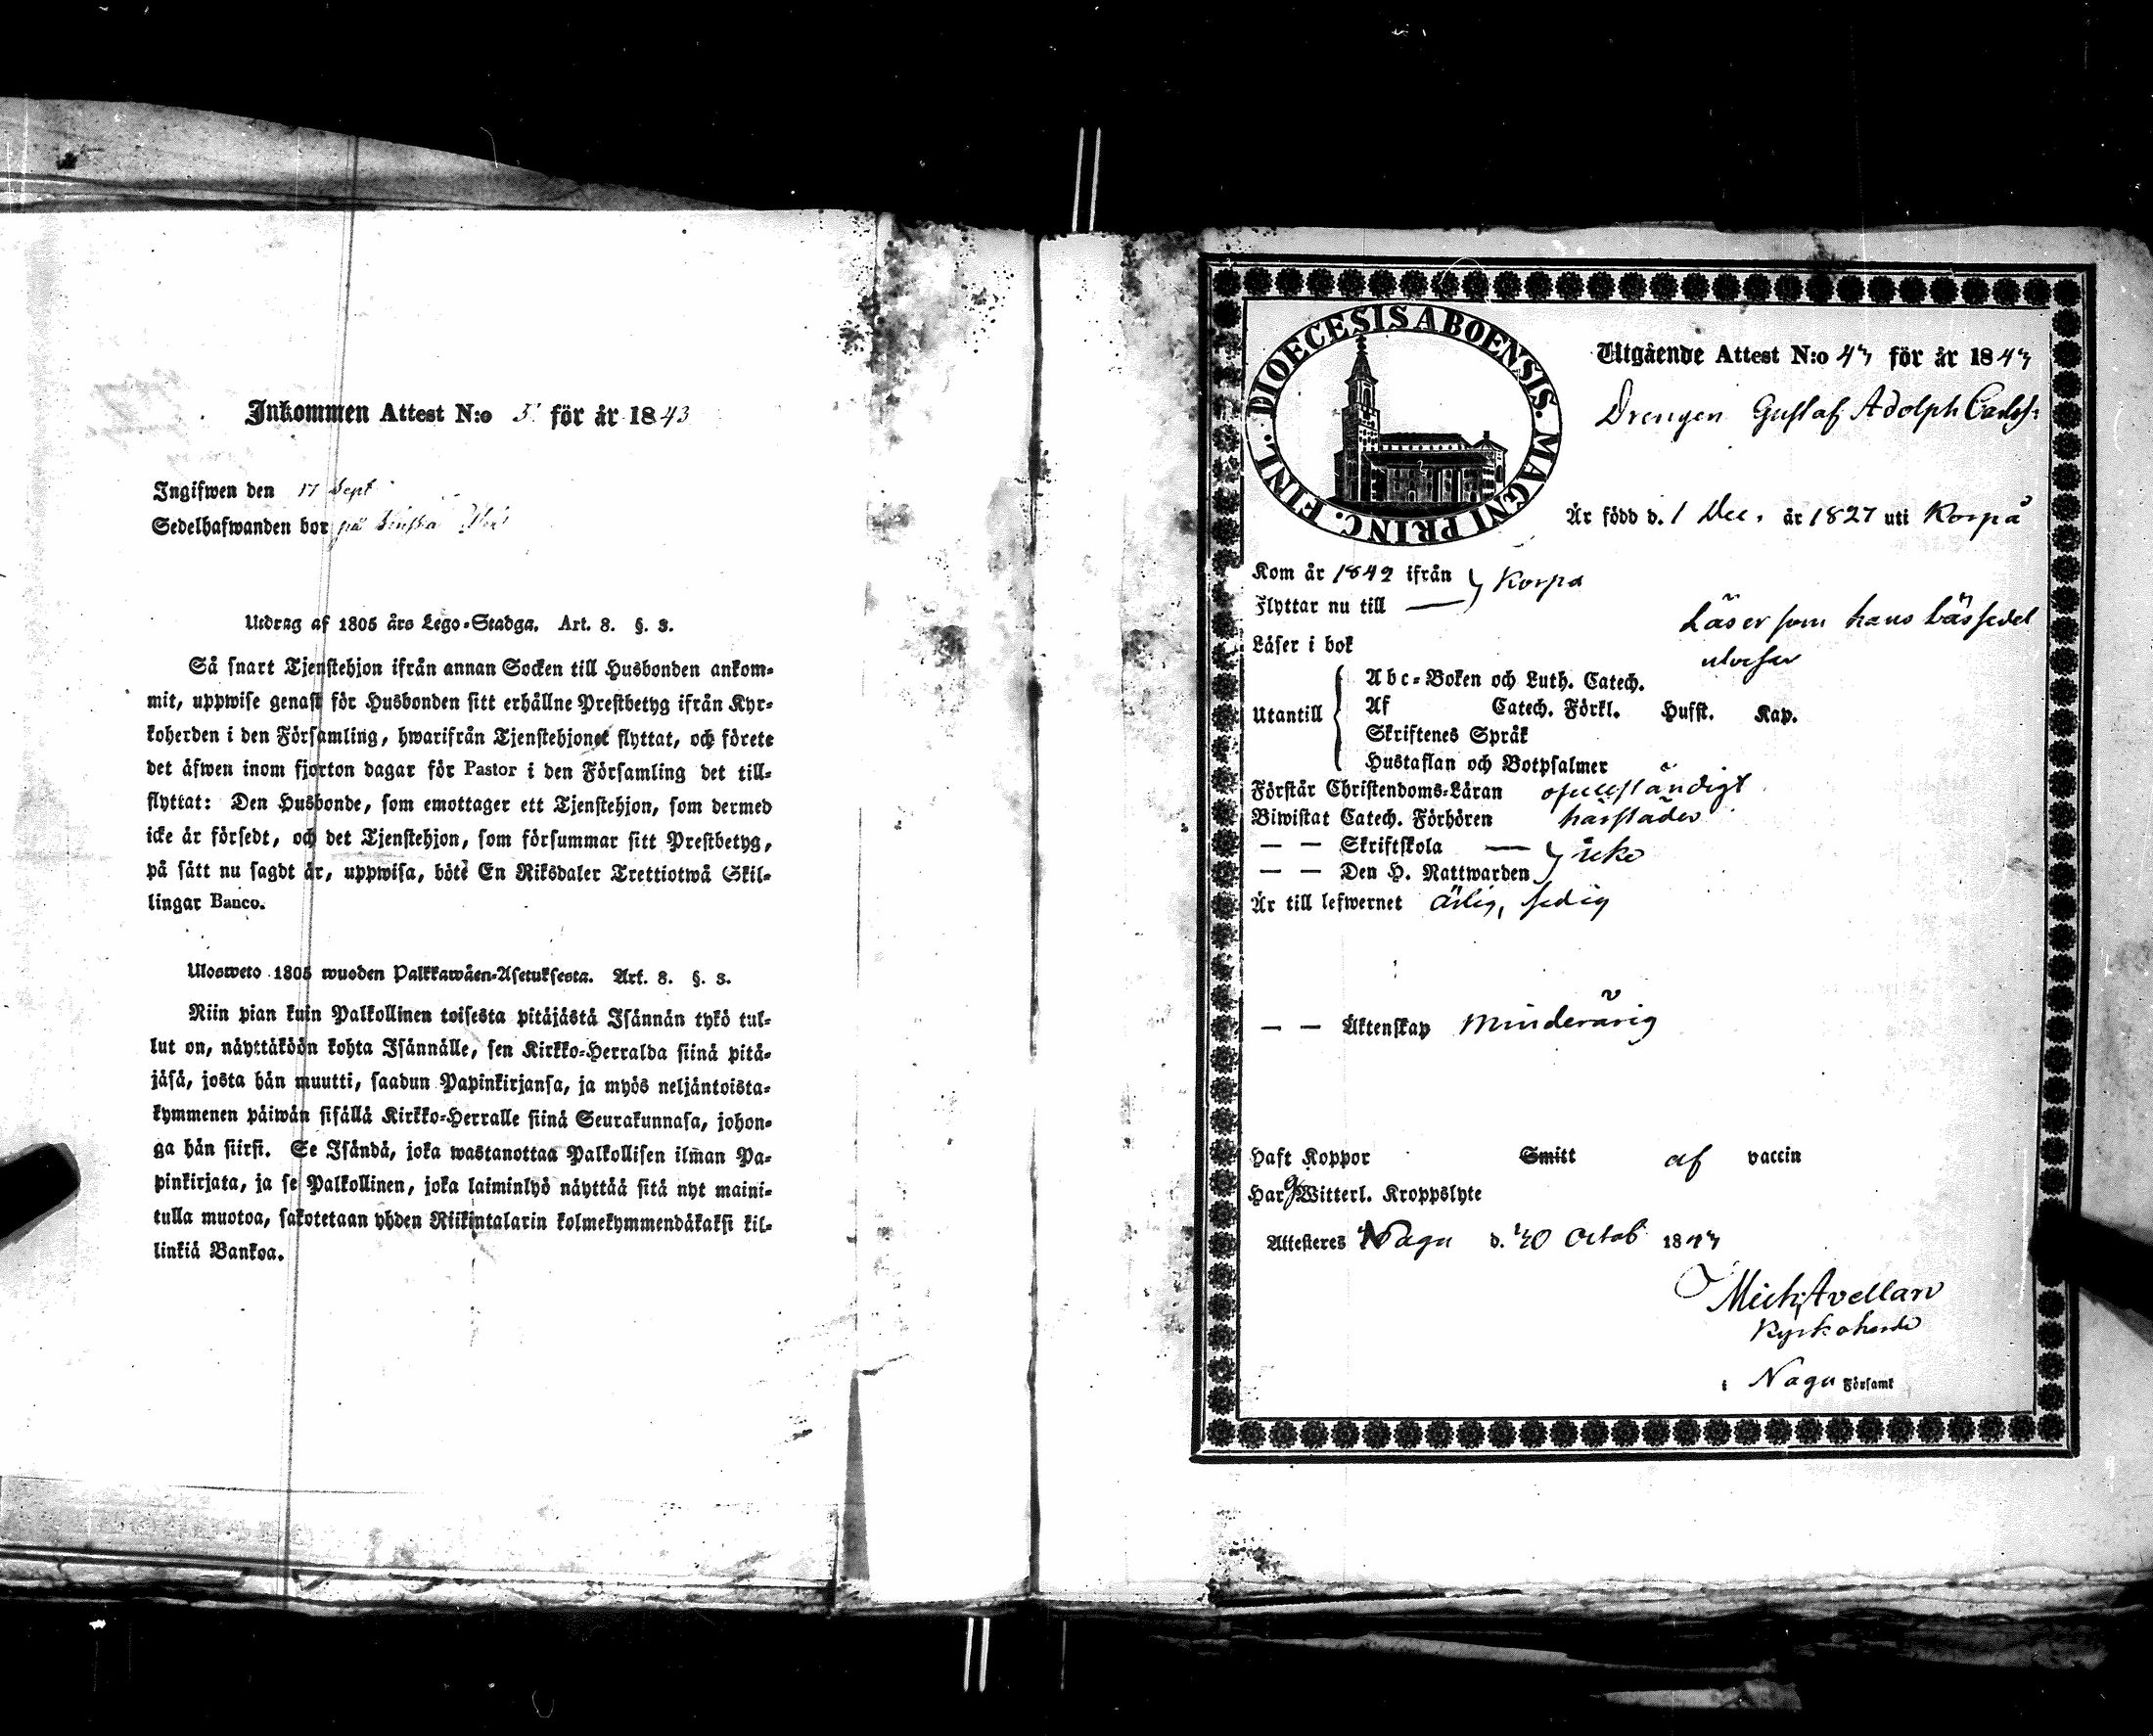 Inkommen Attest N:o 5 för år 1843
Ingifwen den 17 Sept
Sedelhafwanden bor på
Utdrag af 1805 års Lego-Stadga. Art. 8. §. 3.
Så snart Tjenstehjon ifrån annan Socken till Husbonden ankom-
mit, uppwise genast för Husbonden sitt erhållne Prestbetyg ifrån Kyr-
koherden i den Församling, hwarifrån Tjenstehjonet flyttat, och förete
det äfwen inom fjorton dagar för Pastor i den Församling det till-
flyttat: Den Husbonde, som emottager ett Tjenstehjon, som dermed
icke är försedt, och det Tjenstehjon, som försummar sitt Prestbetyg,
på sätt nu sagdt är, uppwisa, böte En Riksdaler Trettiotwå Skil-
lingar Banco.
Ulosweto 1805 wuoden Palkkawäen-Asetuksesta. Art. 8. §. 3.
Niin pian kuin Palkollinen toisesta pitäjästä Isännän tykö tul-
lut on, näyttäköön kohta Isännälle, sen Kirkko-Herralda siinä pitä-
jäsä, josta hän muutti, saadun Papinkirjansa, ja myös neljäntoista-
kymmenen päiwän sisällä Kirkko-Herralle siinä Seurakunnasa, johon-
ga hän siirsi. Se Isändä, joka wastanottaa Palkollisen ilman Pa-
pinkirjata, ja se Palkollinen, joka laiminlyö näyttää sitä nyt maini-
tulla muotoa, sakotetaan yhden Riikintalarin kolmekymmendäkaksi kil-
linkiä Bankoa.
DIOECESIS ABOENSIS. MAGNI PRINC. FINL.
Utgående Attest N:o 43 för år 1843
Drengen Gustaf Adolph Carlss:
Är född d. 1 Dec. år 1827 uti Korpå
Kom år 1842 ifrån } Korpå
Flyttar nu till —
Läser som hans Läs sedel
utviser
Läser i bok
Utantill { Abc-Boken och Luth. Catech.
Af Catech. Förkl. Husst. Kap.
Skriftenes Språk
Hustaflan och Botpsalmer
Förstår Christendoms-Läran ofullständigt
Biwistat Catech. Förhören härstädes
— — Skriftskola — } icke
— — Den H. Nattwarden
Är till lefwernet ärlig, sedig
— — Äktenskap minderårig
Haft Koppor Smitt af vaccin
Har ej Witterl. Kroppslyte
Attesteres Nagu d. 30 Octob 1843
Mich. Avellan
Kyrkoherde
i Nagu Församl